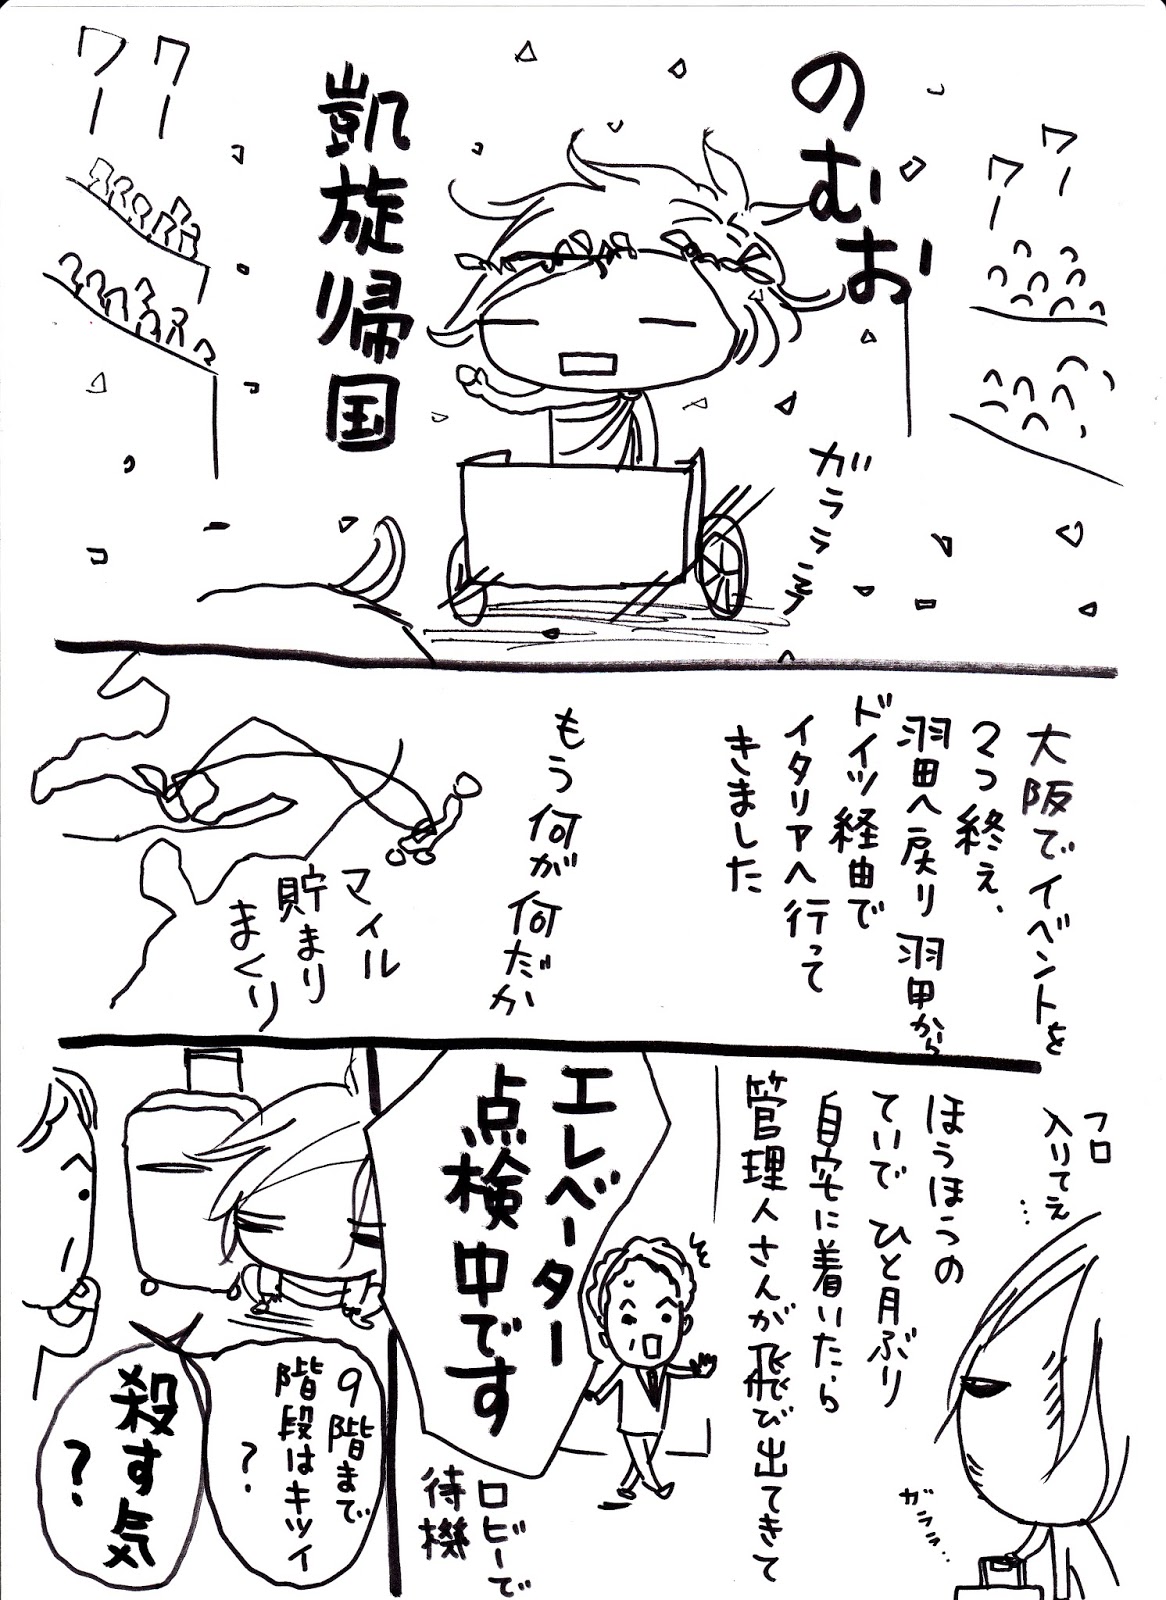 のむお
凱旋帰国
ワー
ワー
ワー
ワー
ガラララ
大阪でイベントを
2つ終え、
羽田へ戻り 羽田から
ドイツ経由で
イタリアへ行って
きました
もう何が何だか
マイル
貯まり
まくり
フロ
入りてえ
…
ほうほうの
ていで ひと月ぶり
自宅に着いたら
管理人さんが飛び出てきて
ガララ…
エレベーター
点検中です
ロビーで
待機
9階まで
階段はキツイ
?
殺す気
?